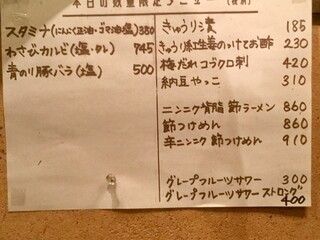 本日の数量限定メニュー(夜)
スタミナ(にんにく正油・ゴマ油塩) 380
わさびカルビ(塩・タレ) 745
青のり豚バラ(塩) 500
きゅうり漬 185
きゅうり紅生姜のっけてお酢 230
梅だれコラクロ刺 420
納豆やっこ 310
ニンニク背脂 節ラーメン 860
節つけめん 860
辛ニンニク節つけめん 910
グレープフルーツサワー 300
グレープフルーツサワー ストロング 400